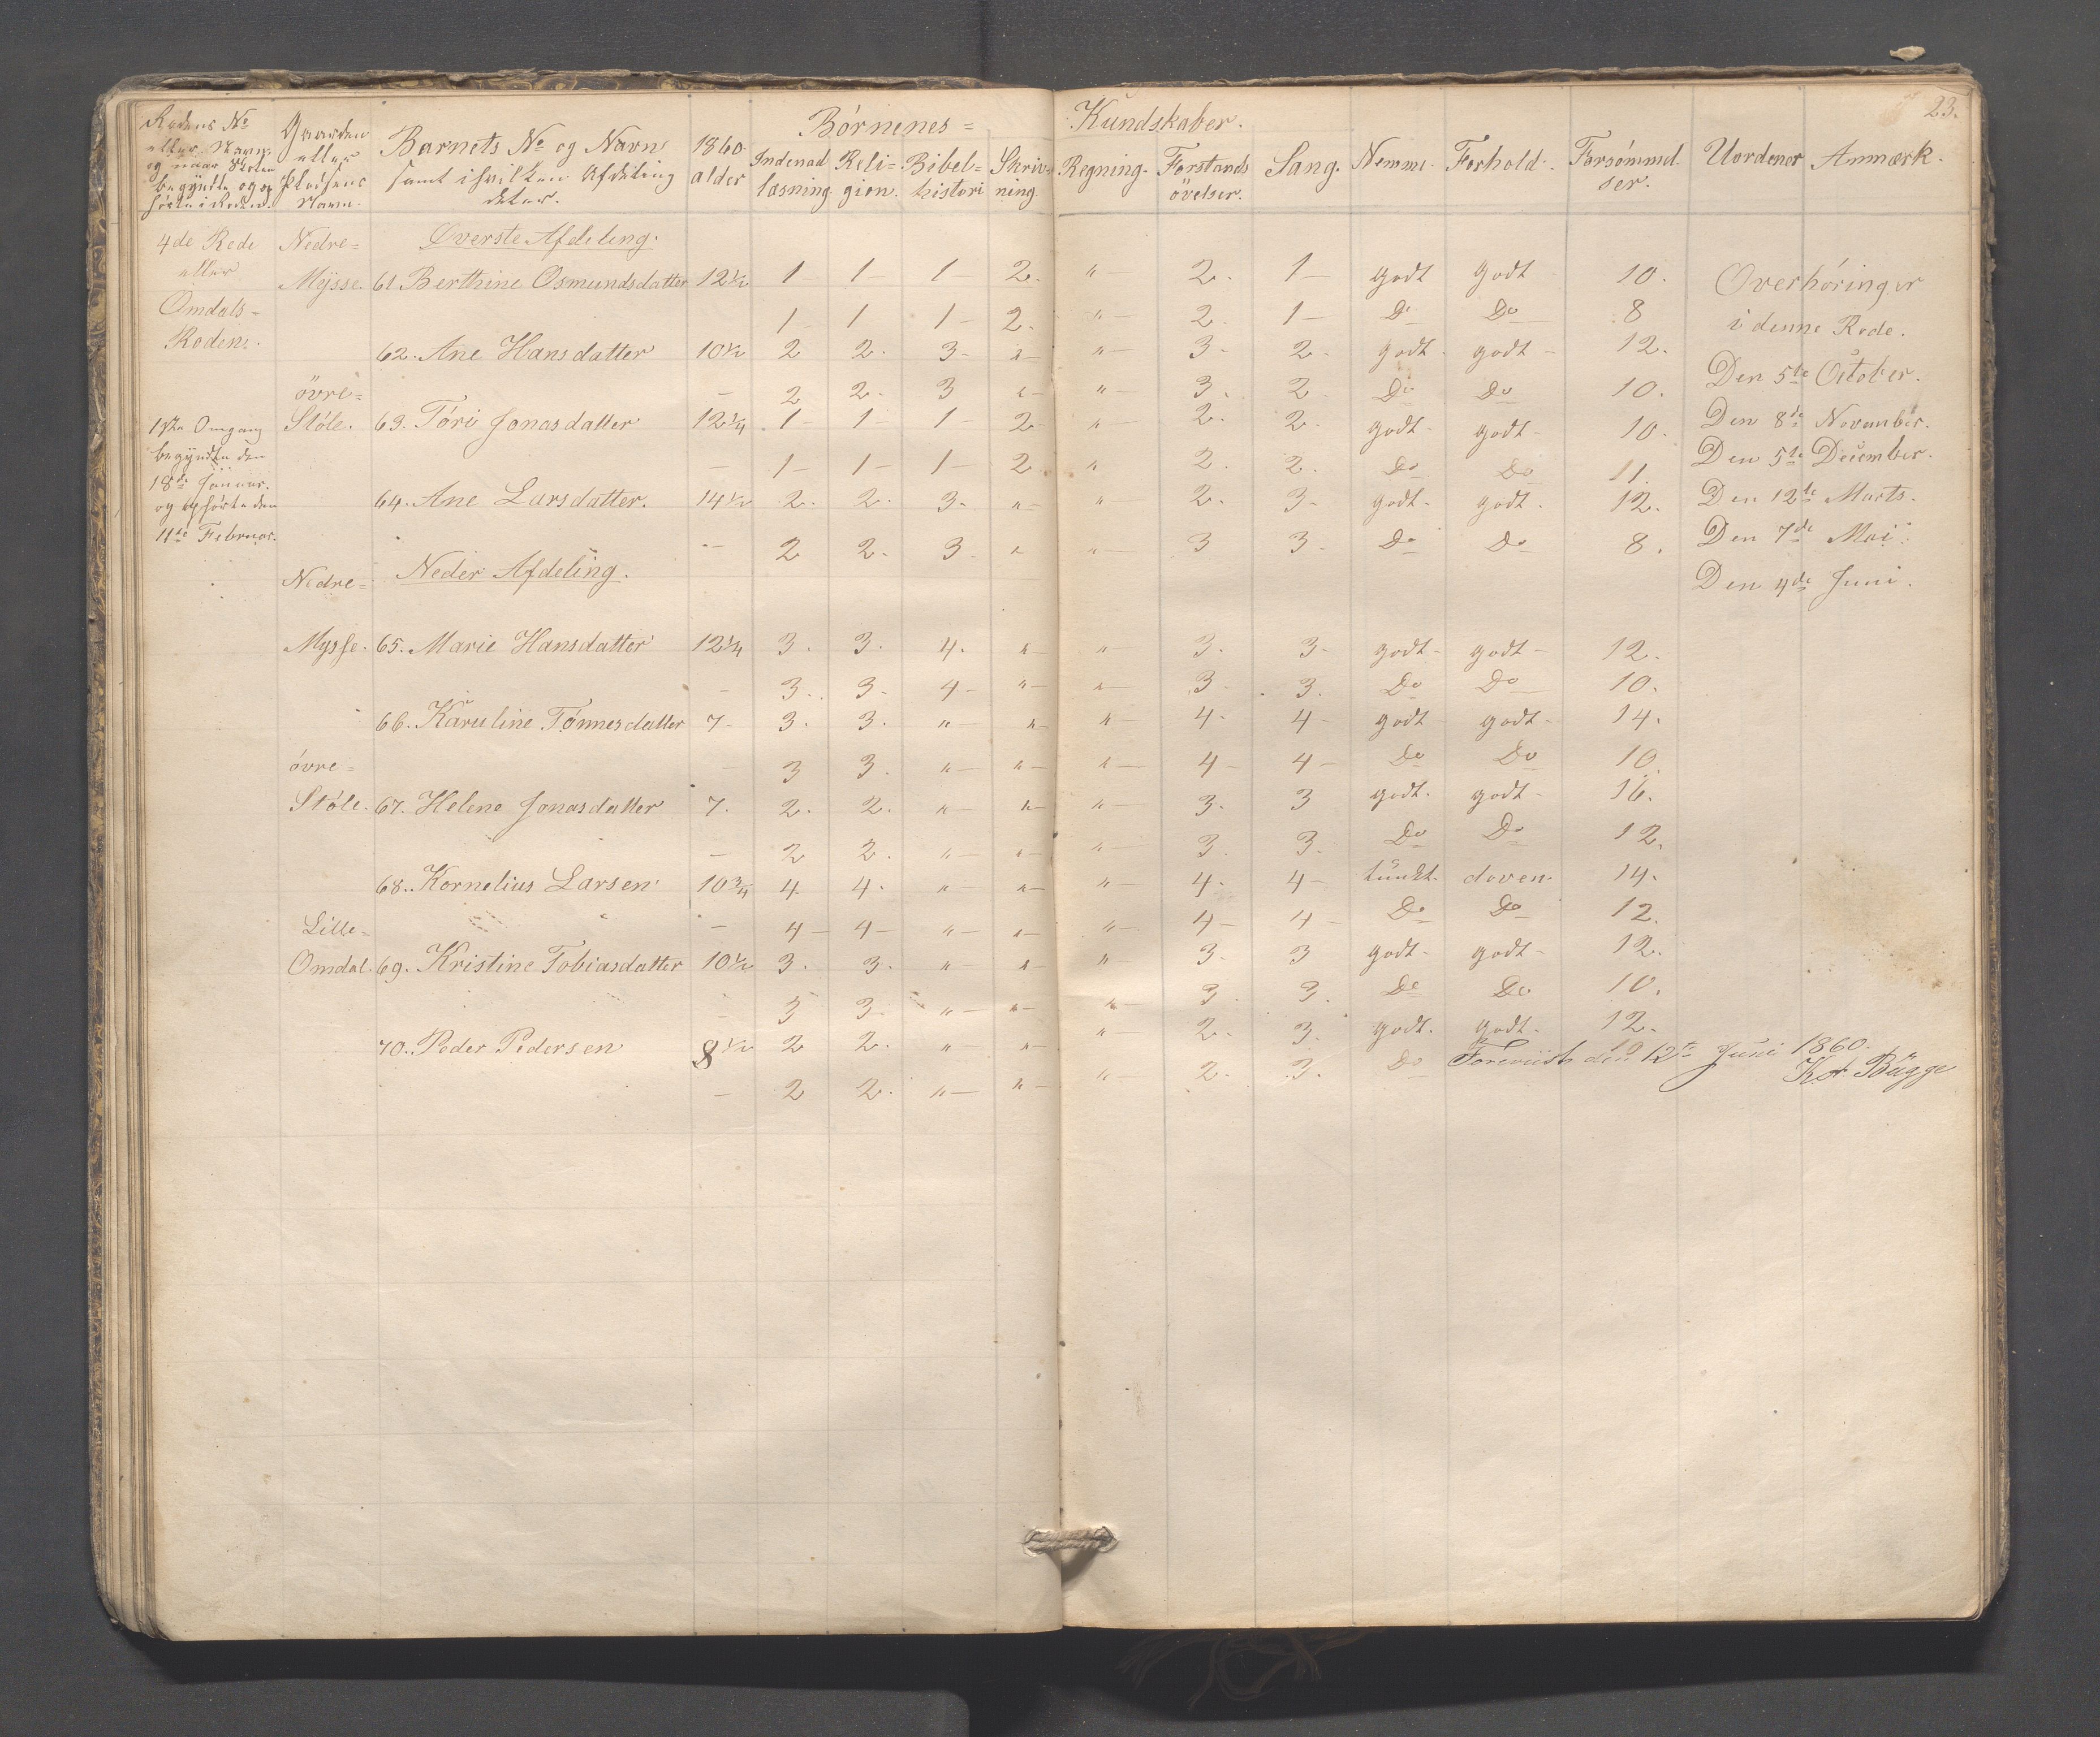 23.
Børnenes = Kundskaber.
Rodens No eller Navn og naar Skolen begyndte og ophørte i Roden.
Gaarden eller Pladsens Navn.
Barnets No og Navn samt i hvilken Afdeling deter.
1860. alder
Indenad læsning.
Reli= gion.
Bibel= histori
Skriv= ning.
Regning.
Forstands övelser.
Sang.
Nemme.
Forhold.
Forsømmel ser.
Uordener
Anmærk.
4de Rode eller Omdals= Roden.
1ste Omgang begyndte den 18de Januar. og ophørte den 11te Februar.
Øverste Afdeling.
Nedre= Mysse. 61. Berthine Osmundsdatter 12½ 1 – 1 – 1 – 2. " 2. 1 – godt godt 10.
1 – 1 1 – 2. " – 2 1 – Do Do 8
62. Ane Hansdatter 10½ 2 2. 3 – " – " – 3 – 2 – godt – godt – 12.
– 2 2. 3 " – " – 3. 2 Do Do 10.
övre= Støle. 63. Tóri Jonasdatter 12¼ 1 – 1 – 1 – 2 – " – 2. 2. godt – godt – 10.
– 1 – 1 – 1 – 2 " 2. 2. Do Do 11.
64. Ane Larsdatter. 14½ 2. 2. 3. " – " 2. 3. godt – godt. 12.
– 2 2. 3. " " – 3 3. Do Do 8.
Neder Afdeling.
Nedre= Mysse. 65. Marie Hansdatter 12¼ 3. 3. 4. " – " – 3. 3 – godt – godt – 12.
– 3. 3. 4 – " – " – 3 3. Do Do 10.
66. Karuline Tønnesdatter 7 – 3. 3. " – " – " – 4. 4 – godt godt – 14.
3 3. " – " – " – 4 – 4 – Do Do 10.
övre= Støle. 67. Helene Jonasdatter 7. 2. 2. " – " – " – 3. 3 godt. godt – 16.
– 2 2. " – " – " – 3. 3. Do Do 12.
68. Kornelius Larsen 10¾ 4. 4. " – " – " – 4. 4 – tungt. doven. 14.
– 4 – 4 – " – " – " – 4 – 4 – Do Do 12.
Lille= Omdal. 69. Kristine Tobiasdatter 10½ 3. 3. " " " 3. 3 godt – godt – 12.
– 3 3. " – " – " – 3. 3. Do Do 10.
70. Peder Pedersen 8½ 2 2. " " – " – 2. 3. godt. godt – 12.
– 2 2. " – " – " – 2. 3. Do
Overhøringer
i denne Rode.
Den 5te October.
Den 8de November.
Den 5te December.
Den 12te Marts.
Den 7de Mai.
Den 4de Juni.
Foreviist den 12te Juni 1860.
Bugge